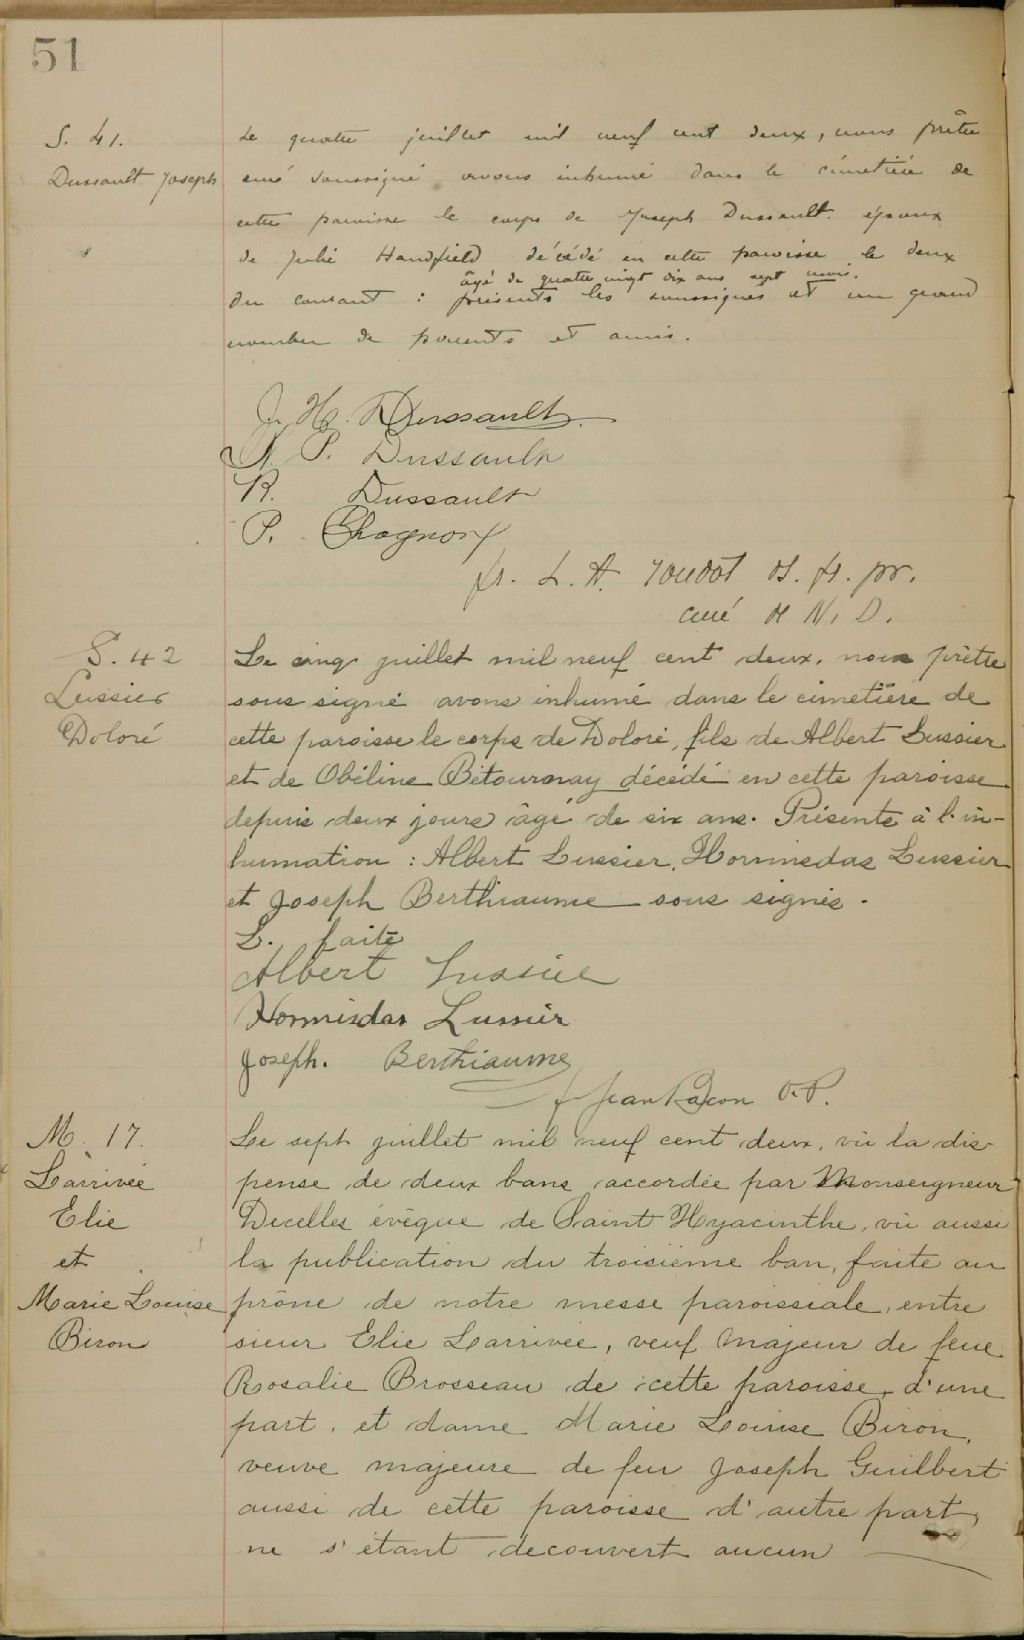 51
S. 41.
Dussault Joseph
Le quatre juillet mil neuf cent deux, nous prêtre
curé soussigné avons inhumé dans le cimetière de
cette paroisse le corps de Joseph Dussault époux
de Julie Handfield décédé en cette paroisse le deux
âgé de quatre vingt dix ans sept mois.
du courant : présents les soussignés et un grand
nombre de parents et amis.
J. H. Dussault
A. P. Dussault
R. Dussault
P. Chagnon
fr. L. A. d. fr. pr.
curé de N. D.
S. 42
Lussier
Doloré
Le cinq juillet mil neuf cent deux, nous prêtre
sous signé avons inhumé dans le cimetière de
cette paroisse le corps de Doloré, fils de Albert Lussier
et de Obéline Bétournay décédé en cette paroisse
depuis deux jours âgé de six ans. Présents à l'in-
humation : Albert Lussier, Hormisdas Lussier
et Joseph Berthiaume sous signés.
L. faite
Albert Lussier
Hormisdas Lussier
Joseph. Berthiaume
f Jean Bacon O.P.
M. 17.
Larrivée
Elie
et
Marie Louise
Biron
Le sept juillet mil neuf cent deux, vu la dis-
pense de deux bans accordée par Monseigneur
Decelles évêque de Saint Hyacinthe, vu aussi
la publication du troisième ban, faite au
prône de notre messe paroissiale, entre
sieur Elie Larrivée, veuf majeur de feue
Rosalie Brosseau de cette paroisse, d'une
part, et dame Marie Louise Biron,
veuve majeure de feu Joseph Guilbert
aussi de cette paroisse d'autre part,
ne s'étant decouvert aucun